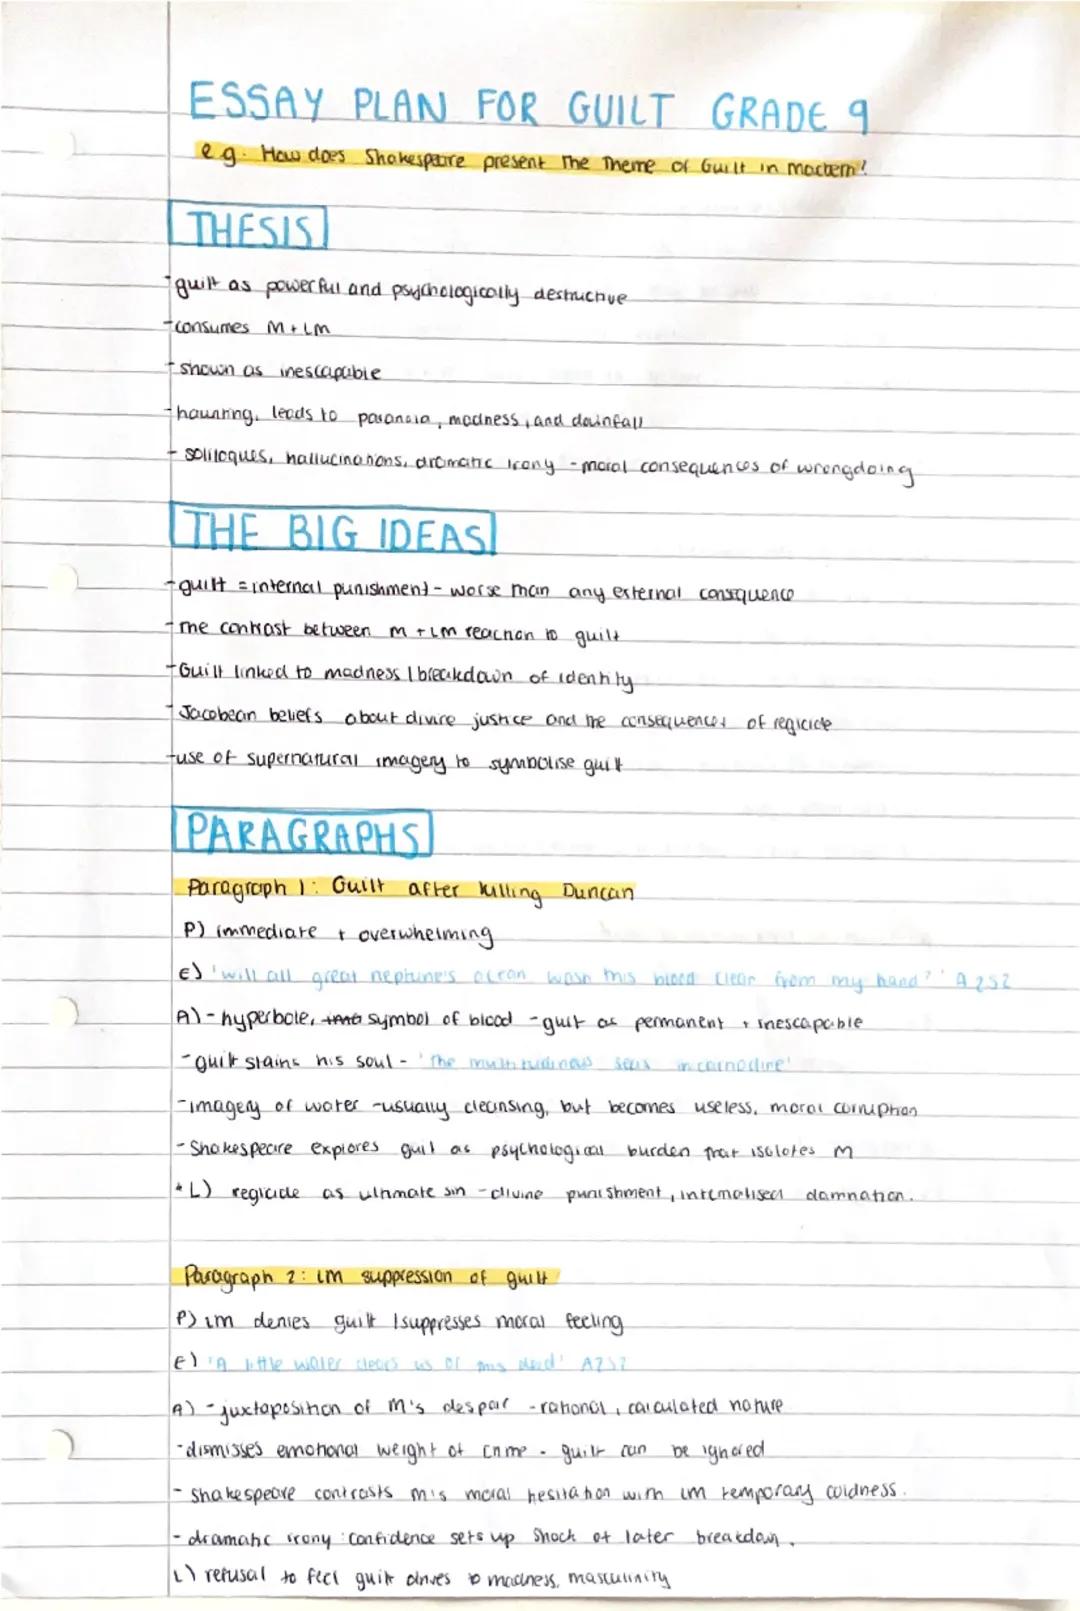 ESSAY PLAN FOR GUILT GRADE 9
e.g. How does Shakespeare present the Theme of Guilt in Macbeth?
THESIS
-guilt as powerful and psychologically destructive
-consumes M + LM
-shown as inescapable
-haunting, leads to paranoia, madness, and downfall
- soliloques, hallucinations, dramatic irony - moral consequences of wrongdoing
THE BIG IDEAS
-guilt = internal punishment - worse than any external consequence
-The contrast between M + LM reaction to guilt
-Guilt linked to madness / breakdown of identity
-Jacobean beliefs about divine justice and the consequences of regicide
-use of supernatural imagery to symbolise guilt
PARAGRAPHS
Paragraph 1: Guilt after killing Duncan
P) immediate + overwhelming
E) 'will all great neptune's ocean wash this blood clear from my hand?' A2S2
A) - hyperbole, symbol of blood - guilt as permanent + inescapable
-guilt stains his soul - 'The multitudinous seas incarnadine'
-imagery of water -usually cleansing, but becomes useless, moral corruption
- Shakespeare explores guil as psychological burden that isolates M
*L) regicide as ultimate sin - divine punishment, internalised damnation.
Paragraph 2: LM suppression of guilt
P) LM denies guilt / suppresses moral feeling
E) 'A little water clears us of this deed' A2S2
A) - juxtaposition of M's despair - rational, calculated nature
-dismisses emotional weight of crime - guilt can be ignored
- Shakespeare contrasts M's moral hesitation with LM temporary coldness.
- dramatic irony: confidence sets up shock of later breakdown.
L) refusal to feel guilt drives to madness, masculinity